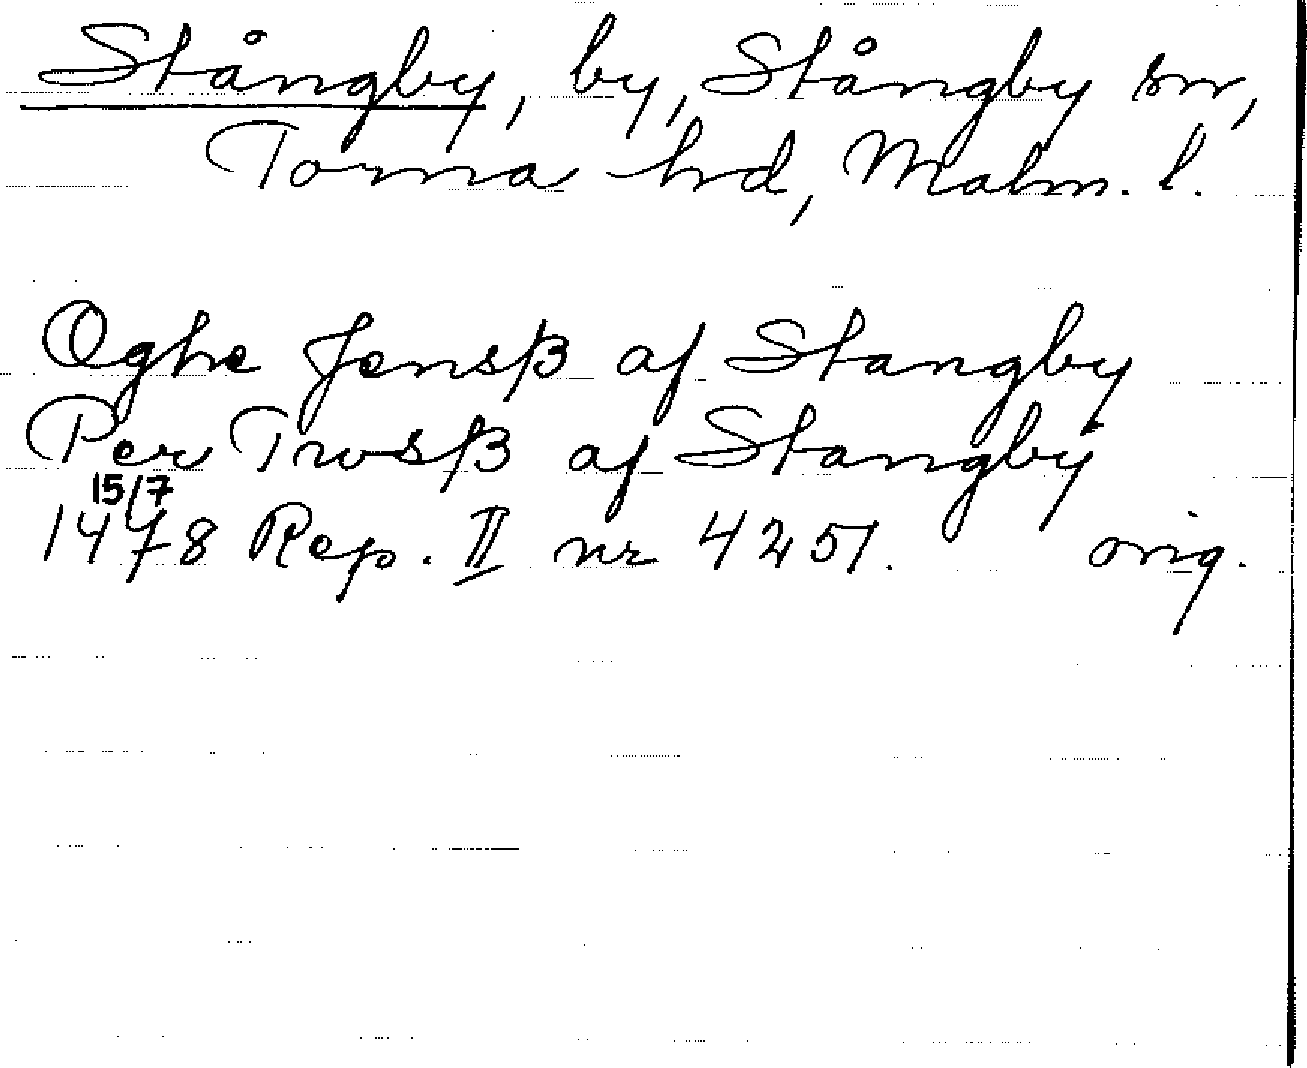 Stångby, by, Stångby sn,
Torna hd, Malm. l.
Oghe Jensß af Stangby
Per Trwsß af Stangby
15/7
1478 Rep. II nr 4251. orig.